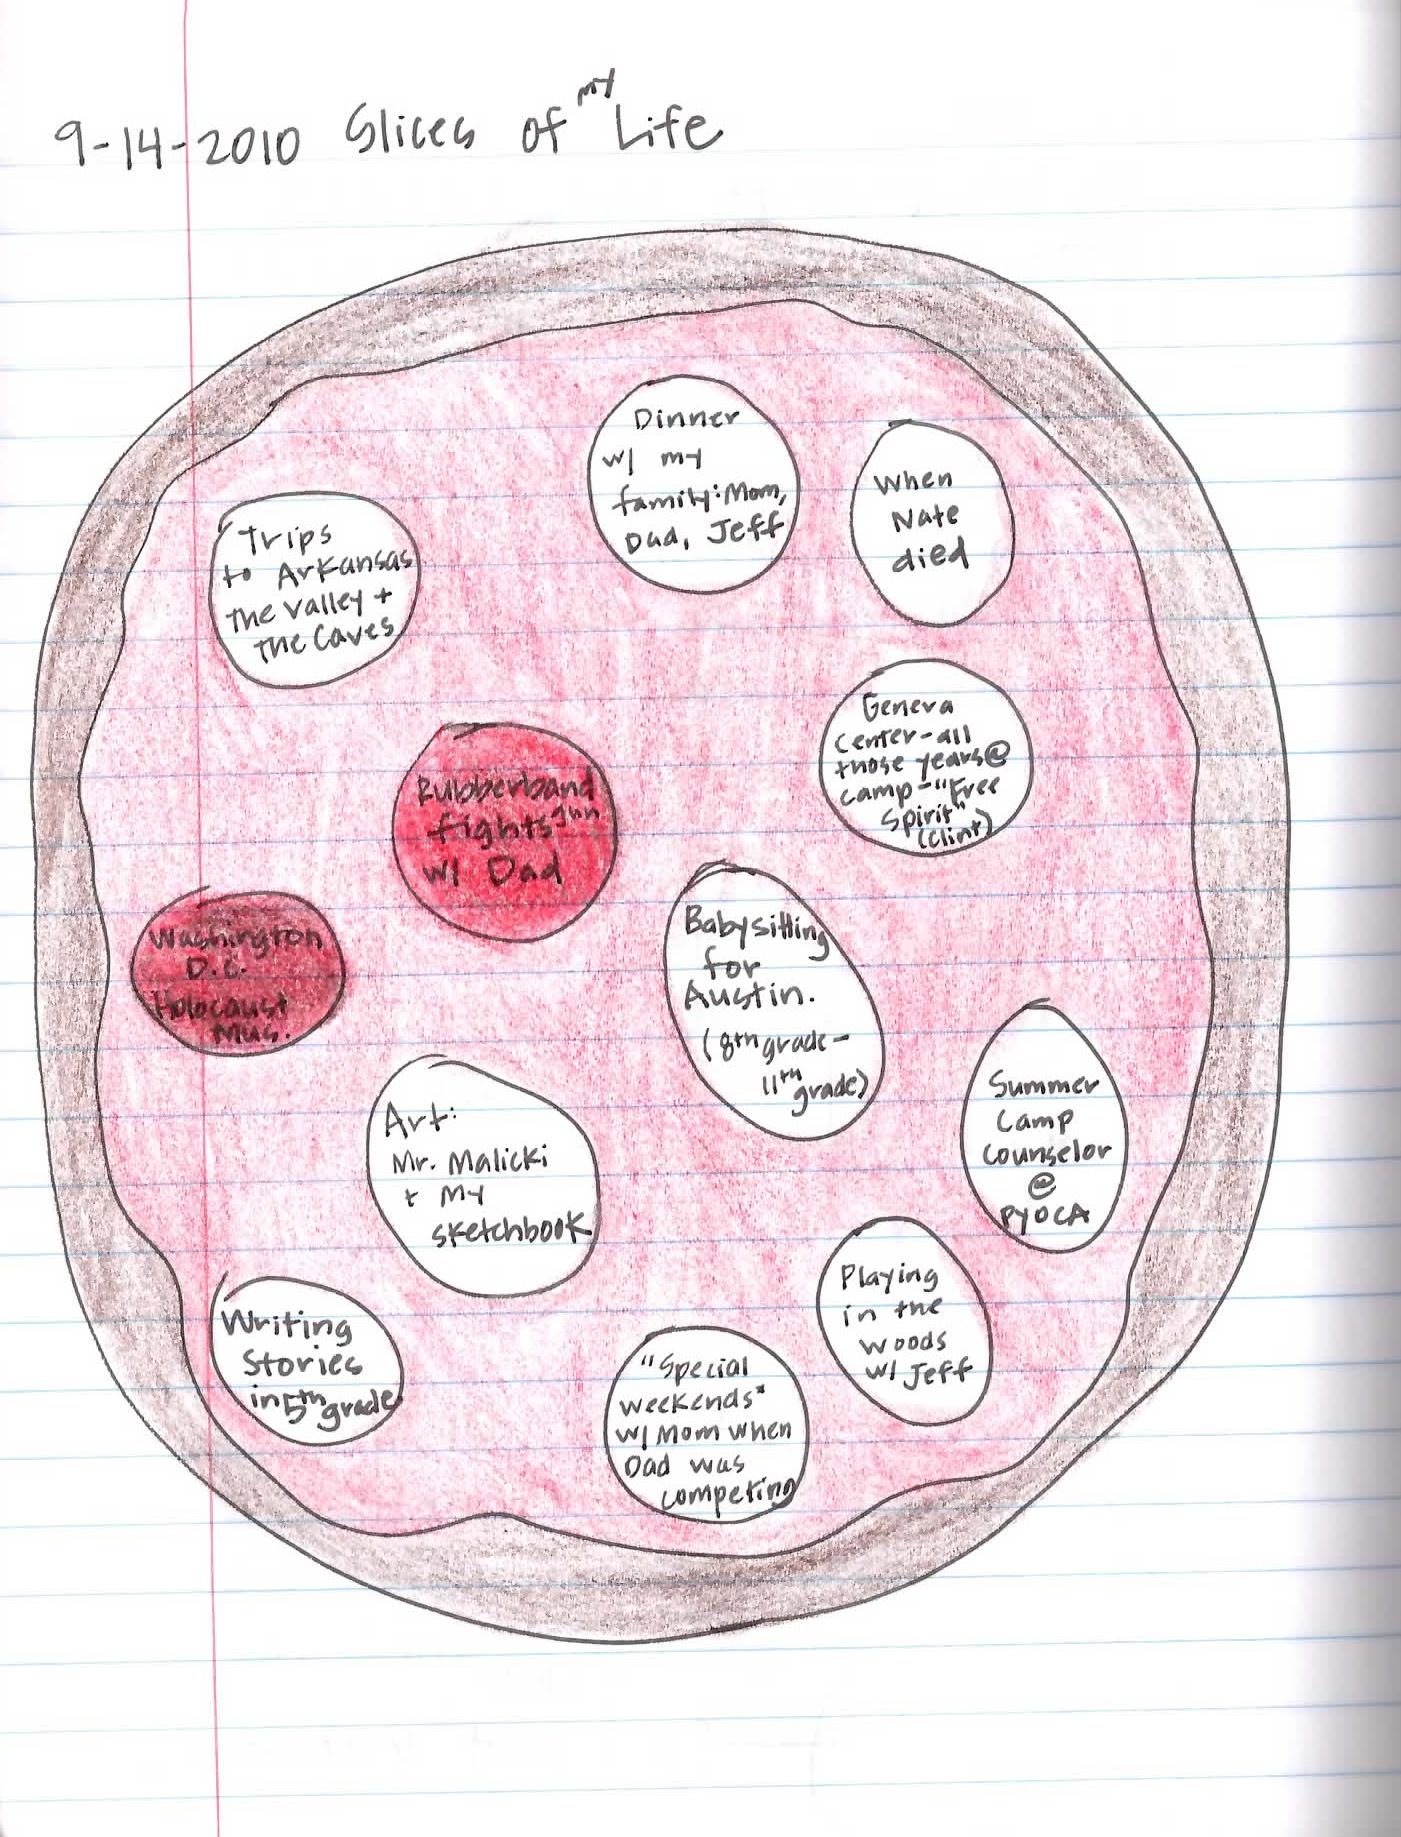 9-14-2010 Slices of my Life
Dinner
w/ my
family: Mom,
Dad, Jeff
When
Nate
died
Trips
to Arkansas
The Valley +
The Caves
Geneva
Center-all
those years@
camp-"Free
Spirit"
(Clint)
Rubberband
gun
fights
w/ Dad
Washington
D.C.
Holocaust
Mus.
Babysitting
for
Austin.
(8th grade-
11th
grade)
Summer
Camp
Counselor
@
PYOCA
Art:
Mr. Malicki
+ My
sketchbook
Playing
in the
woods
w/ Jeff
Writing
Stories
in 5th grade.
"Special
weekends"
w/ Mom when
Dad was
competing